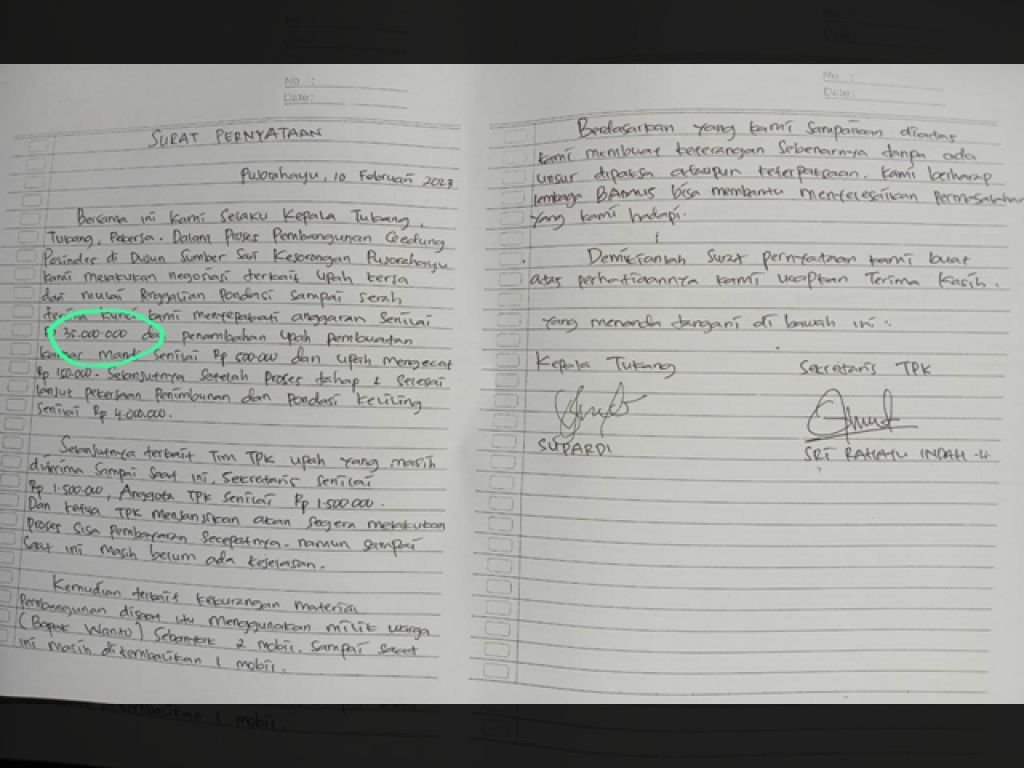 No :
Date:
SURAT PERNYATAAN
Pujorahayu, 10 Februari 2023
Bersama ini Kami Selaku Kepala Tukang,
Tukang, Pekerja. Dalam Proses Pembangunan Gedung
Posindes di Dusun Sumber Sari Kesorongan Pujorahayu
kami melakukan negosiasi terkait upah kerja
dari mulai Penggalian Pondasi sampai serah
terima kunci kami menyepakati anggaran Senilai
Rp 35.000.000 dan penambahan upah pembuatan
kamar mandi senilai Rp 500.000 dan upah mengecat
Rp 150.000. Selanjutnya setelah Proses tahap 1 selesai
lanjut pekerjaan Penimbunan dan Pondasi keliling
Senilai Rp 4.000.000.
Selanjutnya terkait Tim TPK upah yang masih
diterima sampai saat ini, Sekretaris senilai
Rp 1.500.000, Anggota TPK Senilai Rp 1.500.000.
Dan ketua TPK menjanjikan akan segera melakukan
Proses sisa pembayaran secepatnya. namun sampai
saat ini masih belum ada kejelasan.
Kemudian terkait kekurangan material
Pembangunan disaat itu menggunakan milik warga
(Bapak Wanto) Sebanyak 2 mobil. Sampai saat
ini masih dikembalikan 1 mobil.
No :
Date:
Berdasarkan yang kami sampaikan diatas
kami membuat keterangan Sebenarnya tanpa ada
unsur dipaksa ataupun keterpaksaan. Kami berharap
lembaga BAMUS bisa membantu menyelesaikan Permasalahan
yang kami hadapi.
Demikianlah Surat pernyataan kami buat
atas perhatiannya kami ucapkan Terima Kasih.
Yang menanda tangani di bawah ini :
Kepala Tukang Sekretaris TPK
SUPARDI SRI RAHAYU INDAH .W